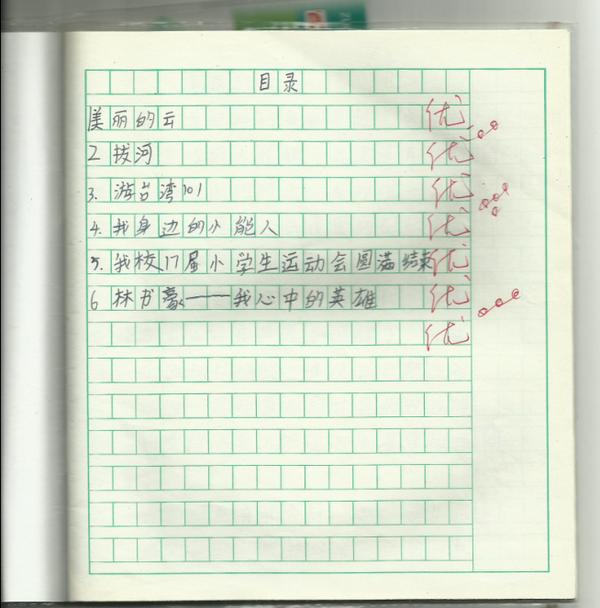 目录
美丽的云 优
2 拔河 优
3. 游台湾101 优
4. 我身边的小能人 优
5. 我校17届小学生运动会圆满结束 优
6 林书豪——我心中的英雄 优
优